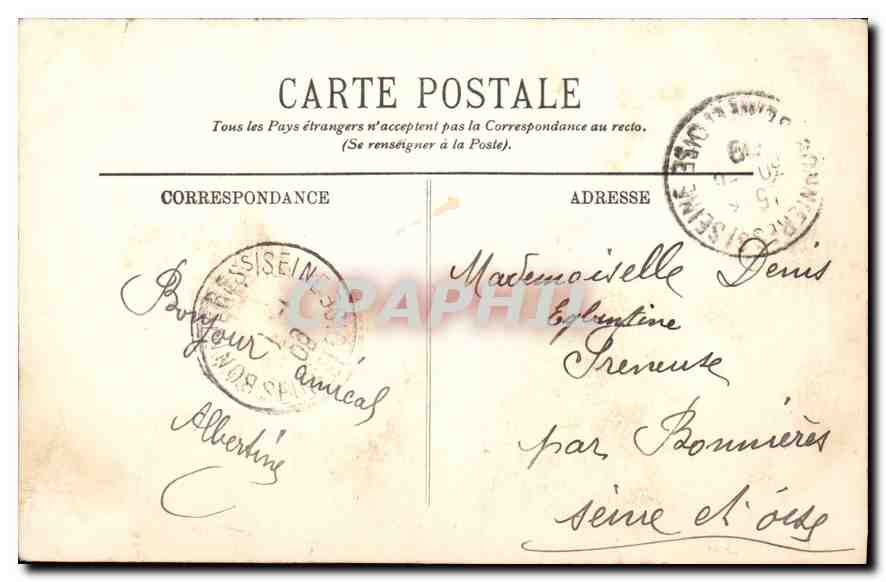 CARTE POSTALE
Tous les Pays étrangers n'acceptent pas la Correspondance au recto.
(Se renseigner à la Poste).
CORRESPONDANCE
ADRESSE
Bonjour amical
Albertine
Mademoiselle Denis
Eglantine
Freneuse
par Bonnières
Seine et Oise
CPAPHIL